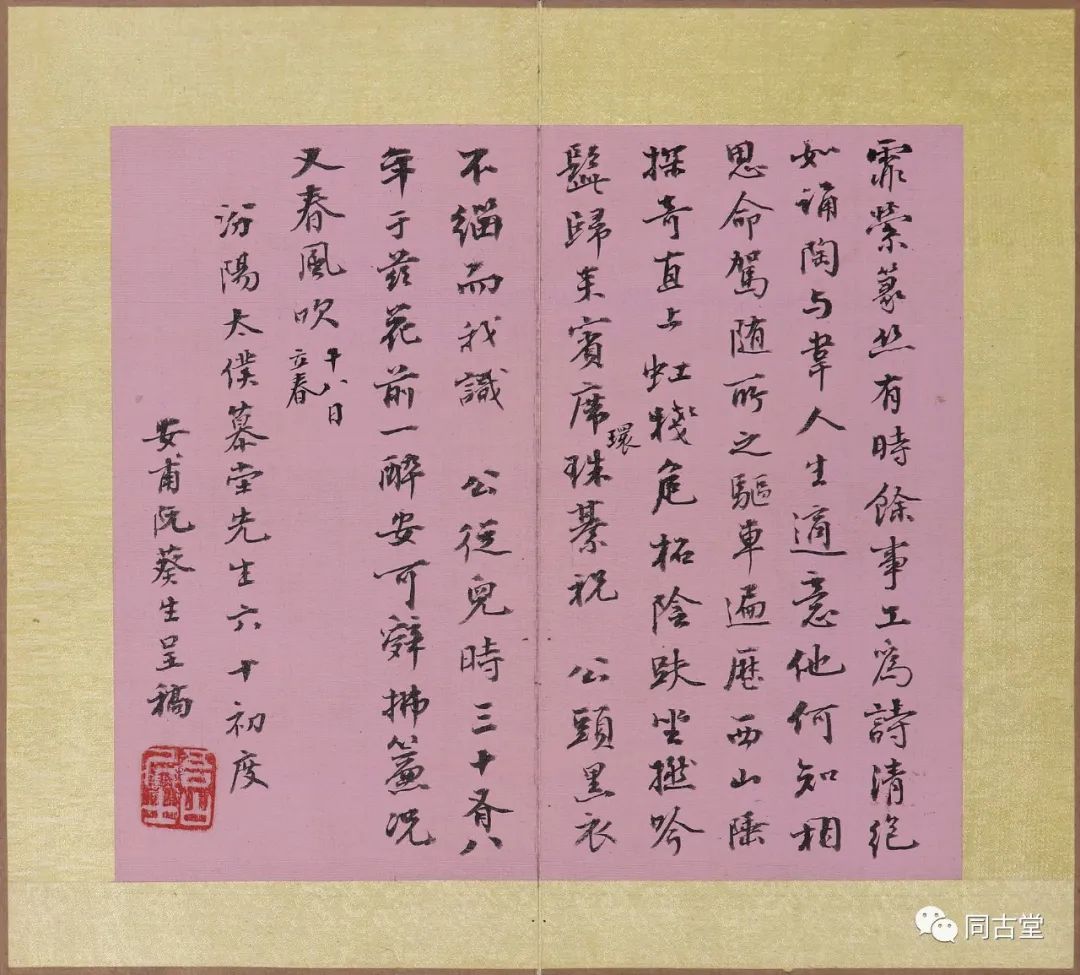 霏縈篆烝有時餘事工為詩清絶
如誦陶与韋人生適意他何知相
思命駕随所之驅車遍歷西山陲
探奇直上虹棧危柘陰趺坐撚吟
髭歸来賓席環珠綦祝 公頭黑衣
不緇而我識 公從兒時三十有八
年于兹花前一醉安可辞拂簷况
又春風吹 十八日立春
汾陽太僕慕堂先生六十初度
安甫阮葵生呈稿
同古堂